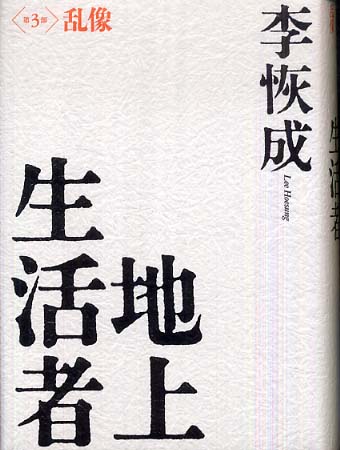 李恢成
Lee Hoesung
〈第3部〉乱像
地上
生活者
生活者